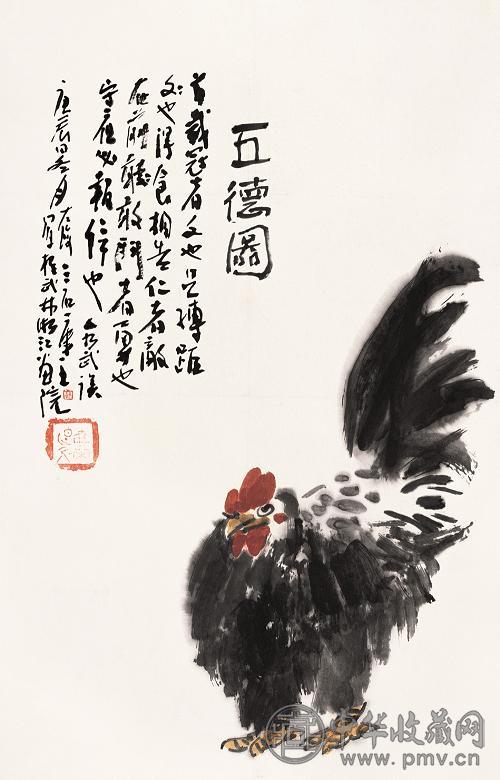 五德圖
首戴冠者文也足搏距
文也得食相告仁者敵
在前敢鬥者勇也
守夜必報信也 武誤
庚辰 月 三石樓主 於武林浙江畫院
中华收藏网
www.pmv.cn